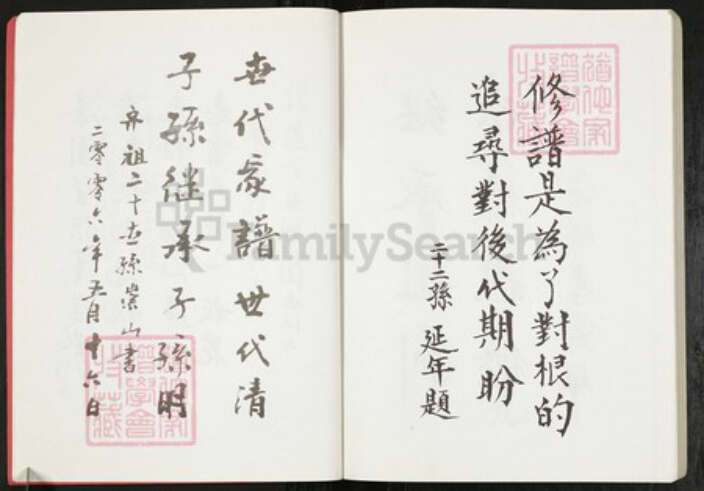 修譜是為了對根的
追尋對後代期盼
二十二孫 延年題
世代家譜世代清
子孫继承子孫明
齐祖二十世孫崇山書
二零零六年五月十六日
譜學會
特藏
FamilySearch